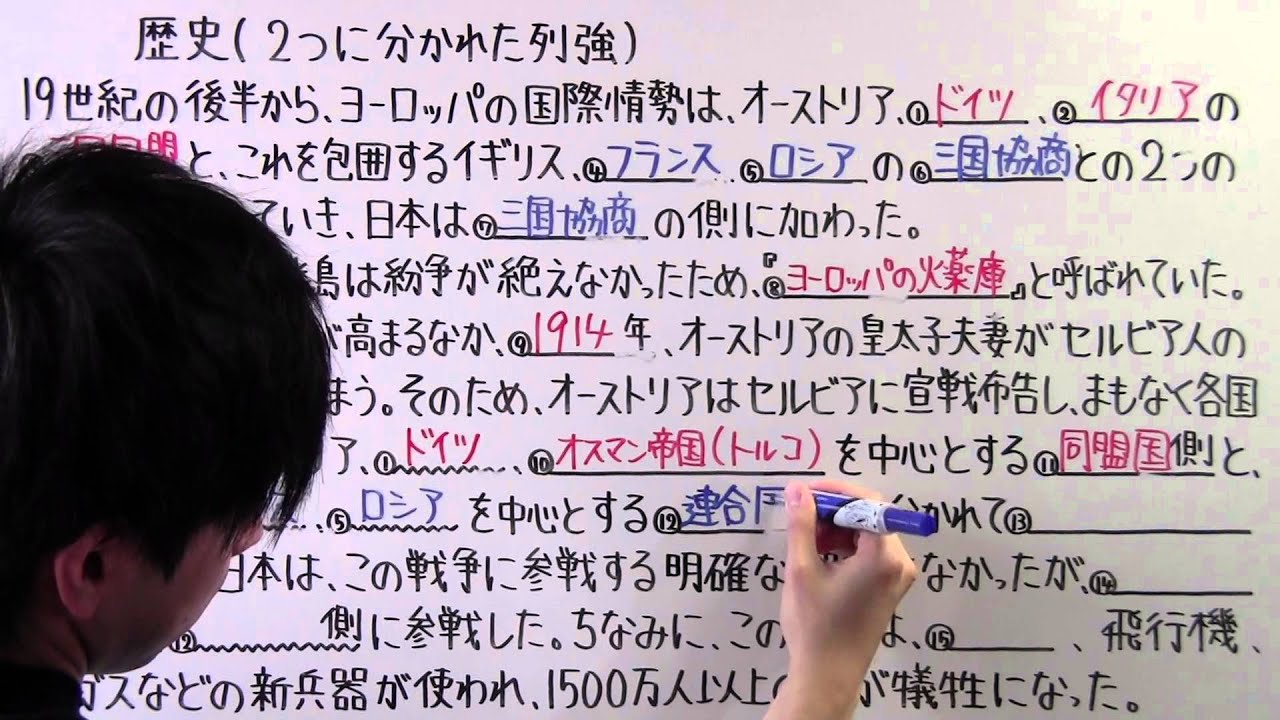 歴史(2つに分かれた列強)
19世紀の後半から、ヨーロッパの国際情勢は、オーストリア、①ドイツ、②イタリアの
と、これを包囲するイギリス、④フランス、⑤ロシアの⑥三国協商との2つの
ていき、日本は⑦三国協商の側に加わった。
島は紛争が絶えなかったため、『⑧ヨーロッパの火薬庫』と呼ばれていた。
が高まるなか、⑨1914年、オーストリアの皇太子夫妻がセルビア人の
まう。そのため、オーストリアはセルビアに宣戦布告し、まもなく各国
ア、①ドイツ、⑩オスマン帝国(トルコ)を中心とする⑪同盟国側と、
、⑤ロシアを中心とする⑫連合 分かれて⑬
日本は、この戦争に参戦する明確な なかったが、⑭
⑫ 側に参戦した。ちなみに、この は、⑮ 、飛行機、
ガスなどの新兵器が使われ、1500万人以上の が犠牲になった。